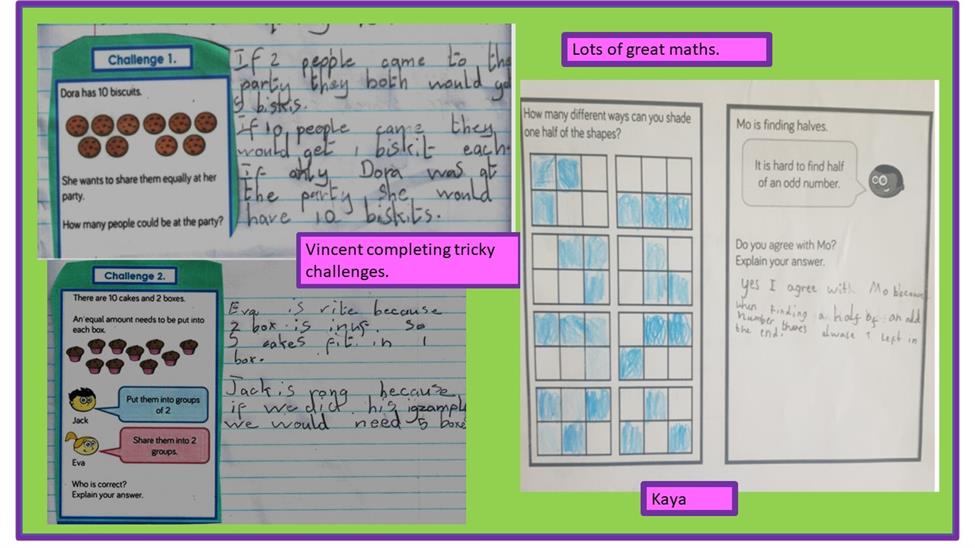 Lots of great maths.
Challenge 1.
Dora has 10 biscuits.
She wants to share them equally at her
party.
How many people could be at the party?
If 2 people came to the
party they both would
5 biskis.
If 10 people came they
would get 1 biskit each.
If only Dora was at
the party she would
have 10 biskits.
Vincent completing tricky
challenges.
Challenge 2.
There are 10 cakes and 2 boxes.
An equal amount needs to be put into
each box.
Put them into groups
of 2
Jack
Share them into 2
groups.
Eva
Who is correct?
Explain your answer.
Eva is rite because
2 box is inuf. so
5 cakes fit in 1
box.
Jack is rong because
if we did his igzampl
we would need 5 boxe
How many different ways can you shade
one half of the shapes?
Mo is finding halves.
It is hard to find half
of an odd number.
Do you agree with Mo?
Explain your answer.
yes I agree with Mo becaus
when finding a half of an odd
number theres always 1 left in
the end.
Kaya